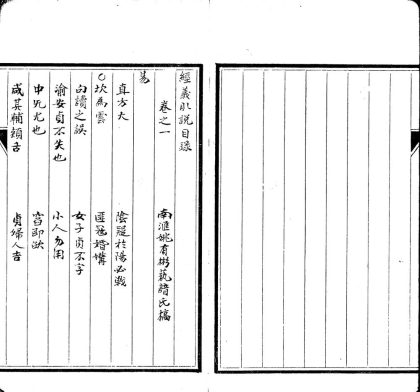 經義肊說目錄
卷之一 南滙姚有彬藝諳氏稿
易
直方大 陰疑於陽必戰
○坎為雲 匪寇婚媾
句讀之誤 女子貞不字
渝安貞不失也 小人勿用
中无尤也
咸其輔頰舌 貞婦人吉